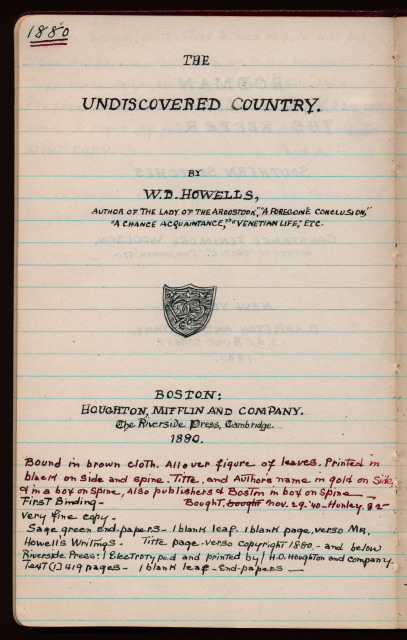 1880
THE
UNDISCOVERED COUNTRY.
BY
W.D. HOWELLS,
AUTHOR OF THE LADY OF THE AROOSTOOK," "A FOREGONE CONCLUSION,"
"A CHANCE ACQUAINTANCE," "VENETIAN LIFE," ETC.
BOSTON:
HOUGHTON, MIFFLIN AND COMPANY.
The Riverside Press, Cambridge.
1880.
Bound in brown cloth. Allover figure of leaves. Printed in
black on side and spine. Title, and Authors name in gold on side,
& in a box on spine, Also publishers & Boston in box on spine
First Binding - Bought, bought Nov. 29-'40-Hanley.
Very fine copy-
Sage green end-papers- 1 blank leaf. 1 blank page, verso Mr,
Howell's Writings- Title page-verso copyright 1880, - and below
Riverside Press: / Electrotyped and printed by / H.O. Houghton and Company.
Text (1) 419 pages - 1 blank leaf - End-papers